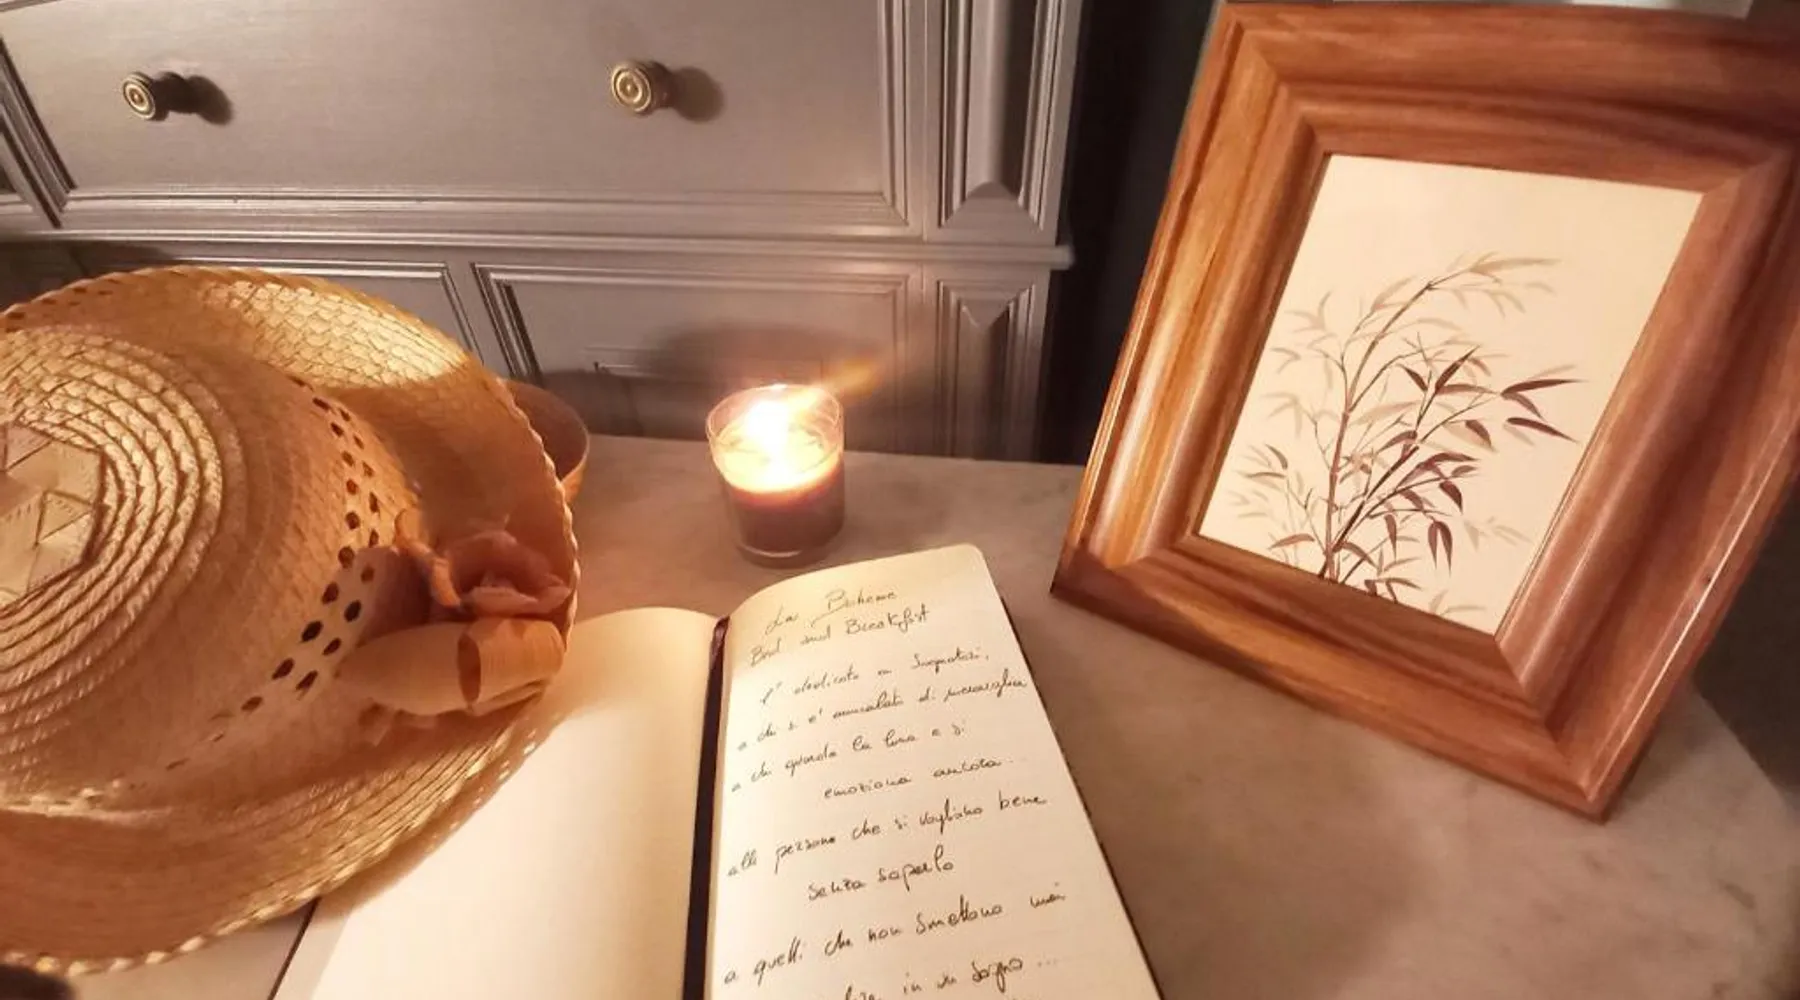 La Boheme
Bed and Breakfast
è dedicato ai Sognatori,
a chi si e' ammalato di meraviglia
a chi guarda la luna e si
emoziona ancora...
alle persone che si vogliono bene
senza saperlo
a quelli che non smettono mai
in un sogno ...